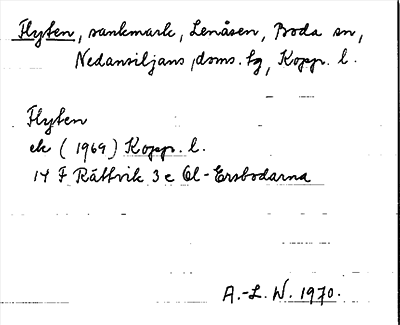 Flyten, sankmark, Lenåsen, Boda sn,
Nedansiljans doms. tg, Kopp. l.
Flyten
ek (1969) Kopp. l.
14 F Rättvik 3 c Ol-Ersbodarna
A.-L. W. 1970.